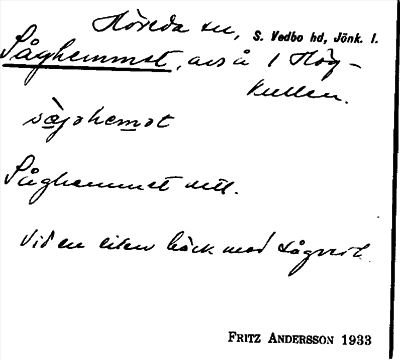 Höreda sn, S. Vedbo hd, Jönk. l.
Såghemmet, avs å 1 Hög-
kullen.
såjahemət
Såghemmet uttl.
Vid en liten bäck med sågverk.
FRITZ ANDERSSON 1933